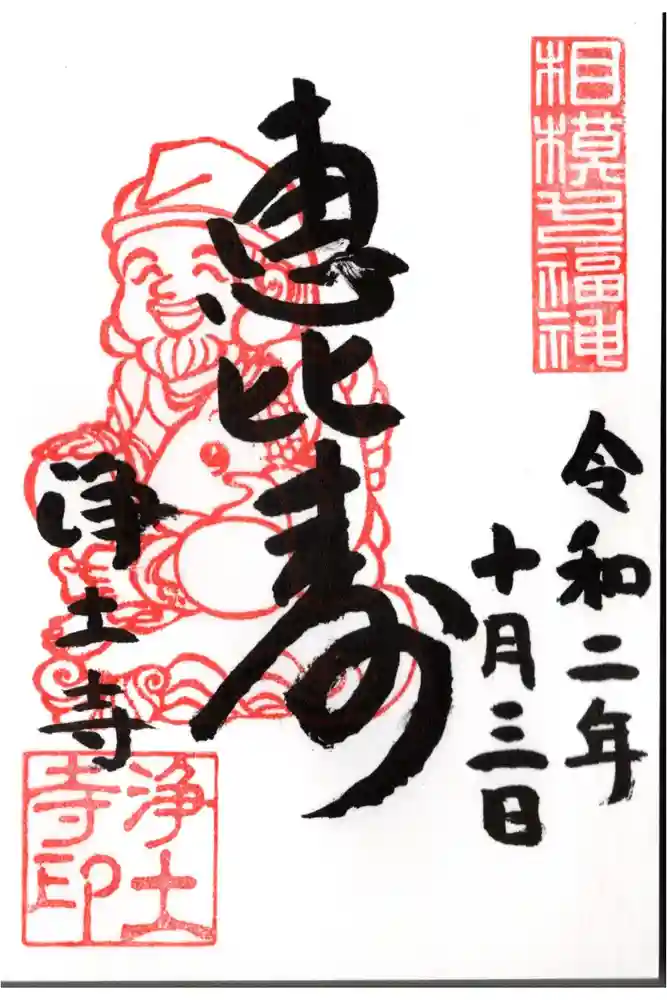 相模七福神
令和二年
十月三日
惠比寿
浄土寺
浄土
寺印